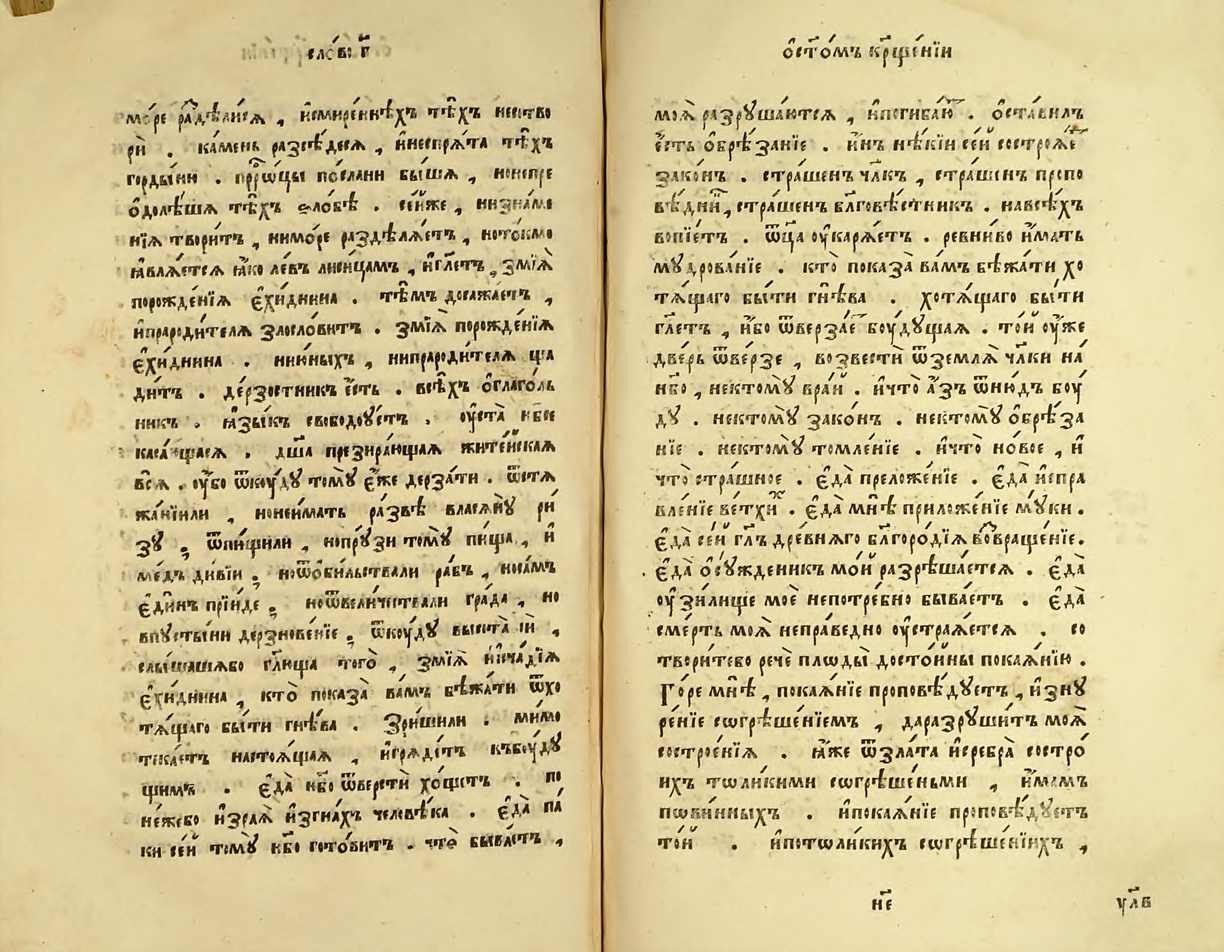 сло́во г҃
мо́ре раздѣли́сѧ , и҆смире́ннѣхъ тѣ́хъ несотво
рѝ . ка́мень разсѣ́десѧ , и҆неспрѧ́та тѣ́хъ
горды́ни . прⷪ҇ро́цы по́слани бы́шѧ , нонепре
ѻ҆долѣ́шѧ тѣ́хъ ѕло́бѣ . се́йже , низна́ме
нїѧ твори́тъ , нимо́ре раздѣлѧ́етъ , нотокмо
ꙗ҆влѧ́етсѧ ꙗ҆́ко ле́въ лиси́цамъ , и҆гл҃етъ , ѕмїѧ̀
порожде́нїѧ є҆хи́днина . тѣ́мъ досажа́етъ ,
и҆прароди́телѧ злосло́витъ . ѕмїѧ̀ порожде́нїѧ
є҆хи́днина . ниюныхъ , нипрароди́телѧ ща
ди́тъ . де́рзостникъ є҆́сть . всѣ́хъ ѡ҆глаго́ль
никъ . ꙗ҆зы́къ свобо́дꙋетъ . оу҆ста̀ нб҃се
каса́ющаѧсѧ . дш҃а̀ презира́ющаѧ жите́йскаѧ
всѧ̀ . оу҆́бо ѿкоу́дꙋ томꙋ̀ є҆́же дерза́ти . ѿстѧ
жа́нїили , нонеи́мать ра́звѣ власѧнꙋ̀ ри
зꙋ̀ . ѿпи́щили , нопрꙋ́зи томꙋ̀ пи́ща , и҆
ме́дъ ди́вїи . ноѿѻби́льствали ра́бъ , носа́мъ
є҆ди́нъ прїи́де . ноѿвели́чествали гра́да , но
впꙋсты́ни дерзнове́нїе . ѿкоу́дꙋ высота̀ сїѝ ,
слы́шашѧбо гл҃юща того̀ , ѕмїѧ̀ и҆ча́дїѧ
є҆хи́днина , кто̀ показа̀ ва́мъ бѣжа́ти ѿхо
тѧ́щаго бы́ти гнѣ́ва . Зри́шили . ми́мо
тека́етъ настоѧ́щаѧ , и҆грѧде́тъ къбоу́дꙋ
щимъ . є҆да̀ нб҃о ѿве́рсти хо́щетъ . по
не́жебо и҆зра́ѧ и҆згна́хъ человѣ́ка . є҆да̀ па́
ки се́й томꙋ̀ нб҃о гото́витъ . что̀ быва́етъ ,
ѻ҆ст҃о́мъ крⷳ҇ще́нїи
моѧ̀ разрꙋша́ютсѧ , и҆погиба́ю . ѡ҆ста́вилъ
є҆́сть ѻ҆брѣ́занїе . и҆́нъ нѣ́кїи се́й состро́же
зако́нъ . стра́шенъ чл҃къ , стра́шенъ пропо
вѣ́дни , стра́шенъ бл҃говѣ́стникъ . навсѣ́хъ
вопїе́тъ . ѿц҃а оу҆карѧ́етъ . ревни́во и҆́мать
мꙋ́дрованїе . кто̀ показа̀ ва́мъ бѣжа́ти хо
тѧ́щаго бы́ти гнѣ́ва . хотѧ́щаго бы́ти
гл҃етъ , нб҃о ѿверза́е боу́дꙋщаѧ . то́й оу҆́же
две́рь ѿве́рзе , возвестѝ ѿземлѧ̀ чл҃ки на́
нб҃о , нектомꙋ̀ вра́й . и҆что̀ а҆́зъ ѿню́дъ боу́
дꙋ . нектомꙋ̀ зако́нъ . нектомꙋ̀ ѻ҆брѣ́за
нїе . нектомꙋ̀ томле́нїе . и҆что̀ но́вое , и҆
что̀ стра́шное . є҆да̀ преложе́нїе . є҆да̀ и҆спра
вле́нїе ве́тхи . є҆да̀ мнѣ̀ приложе́нїе мꙋ́ки .
є҆да̀ се́й гл҃ъ дре́внѧго бл҃горо́дїѧ возвраще́нїе .
є҆да̀ ѻ҆сꙋжде́никъ мо́й разрѣша́етсѧ . є҆да̀
оу҆зи́лище моѐ непотре́бно быва́етъ . є҆да̀
сме́рть моѧ̀ непра́ведно оу҆стра́ѧетсѧ . со
твори́тебо речѐ плѡды̀ досто́йны покаѧ́нїю .
Го́ре мнѣ̀ , покаѧ́нїе проповѣ́дꙋетъ , и҆знꙋ
ре́нїе сѡгрѣше́нїемъ , даразрꙋши́тъ моѧ̀
состро́енїѧ . ꙗ҆̀же ѿзла́та и҆сребра̀ состро́
ихъ тѡли́кими сѡгрѣше́ньми , и҆́мамъ
пѡви́нныхъ . и҆покаѧ́нїе проповѣ́дꙋетъ
то́й . и҆потѡли́кихъ сѡгрѣше́нїихъ ,
не
ул҃в